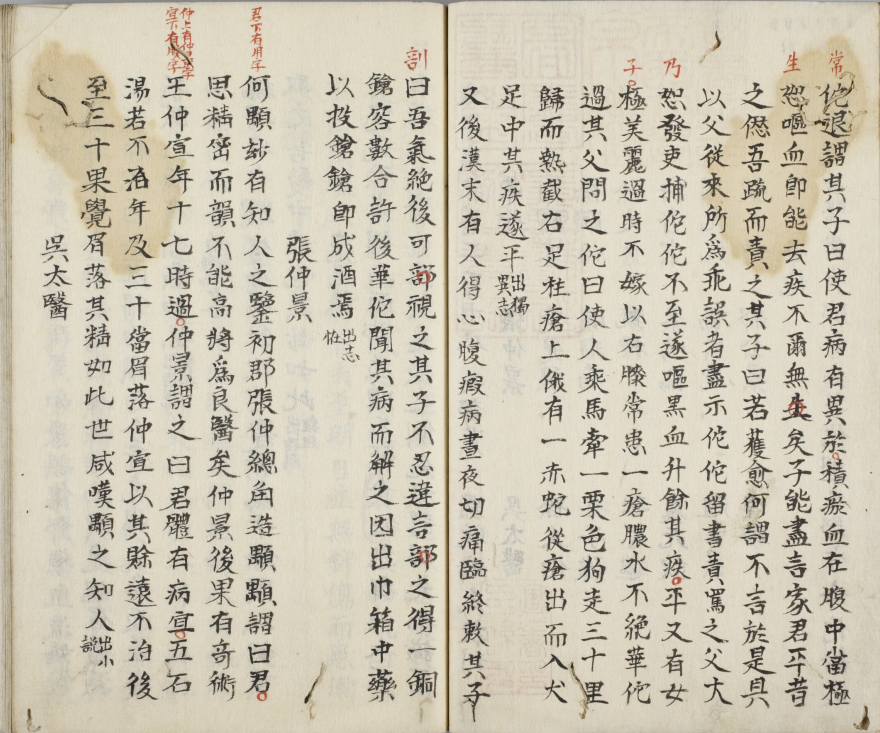 常
佗退謂其子曰使君病有異於積瘀血在腹中當極
生
恕嘔血即能去疾不爾無生矣子能盡言家君平昔
之僁吾疏而責之其子曰若獲愈何謂不言於是具
以父從來所為乖誤者盡示佗佗留書責罵之父大
乃
恕發吏捕佗佗不至遂嘔黑血升餘其疾平又有女
子
極美麗過時不嫁以右膝常患一瘡膿水不絕華佗
過其父問之佗曰使人乘馬牽一栗色狗走三十里
歸而熱截右足柱瘡上俄有一赤蛇從瘡出而入犬
足中其疾遂平出獨異志
又後漢末有人得心腹瘕病晝夜切痛臨終敕其子
剖
曰吾氣絕後可部視之其子不忍違言部之得一銅
鎗容數合許後華佗聞其病而解之因出巾箱中藥
以投鎗鎗即成酒焉出志怪
張仲景
君下有用字
何顒妙有知人之鑒初郡張仲總角造顒顒謂曰君
思精密而韻不能高將為良醫矣仲景後果有奇術
王仲宣年十七時過仲景謂之曰君體有病宜五石
湯若不治年及三十當眉落仲宣以其賒遠不治後
至三十果覺眉落其精如此世咸嘆顒之知人出小說
吳太醫